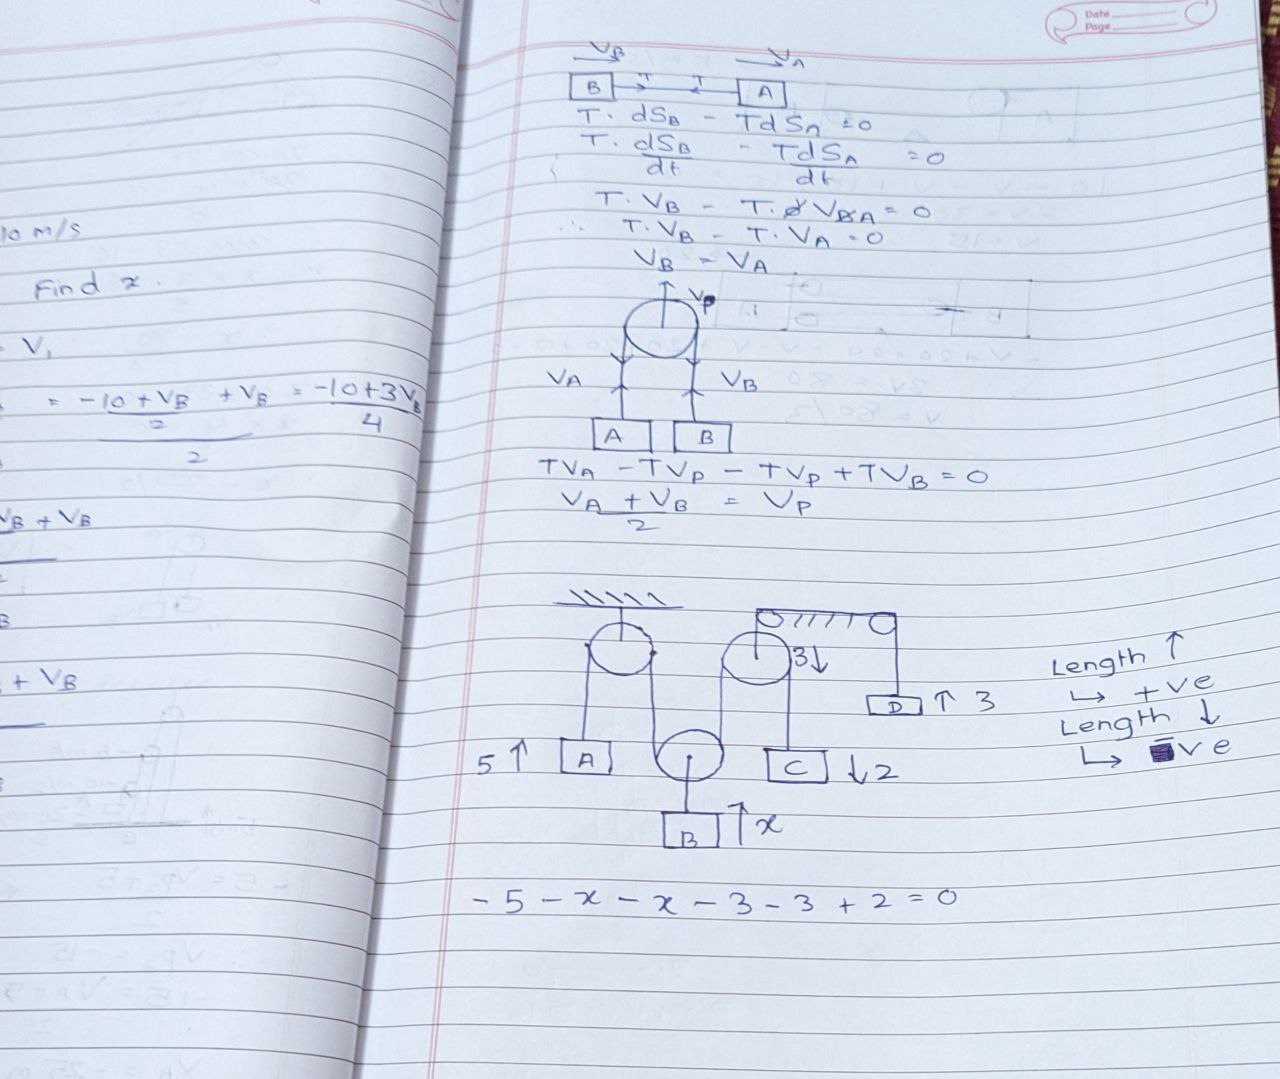 10 m/s
Find x.
- V₁
= -10 + VB + VB = -10+3VB
2
4
2
VB + VB
B
+ VB
Date
Page
VB
VA
B T T A
T. dSB - TdSA = 0
T. dSB - TdSA = 0
dt dt
T. VB - T. VA = 0
∴ T. VB - T. VA = 0
VB = VA
VP
VA VB
A B
TVA - TVP - TVP + TVB = 0
VA + VB = VP
2
3↓
Length ↑
↳ +ve
D ↑ 3
Length ↓
↳ -ve
5 ↑ A
C ↓2
B ↑x
-5 - x - x - 3 - 3 + 2 = 0